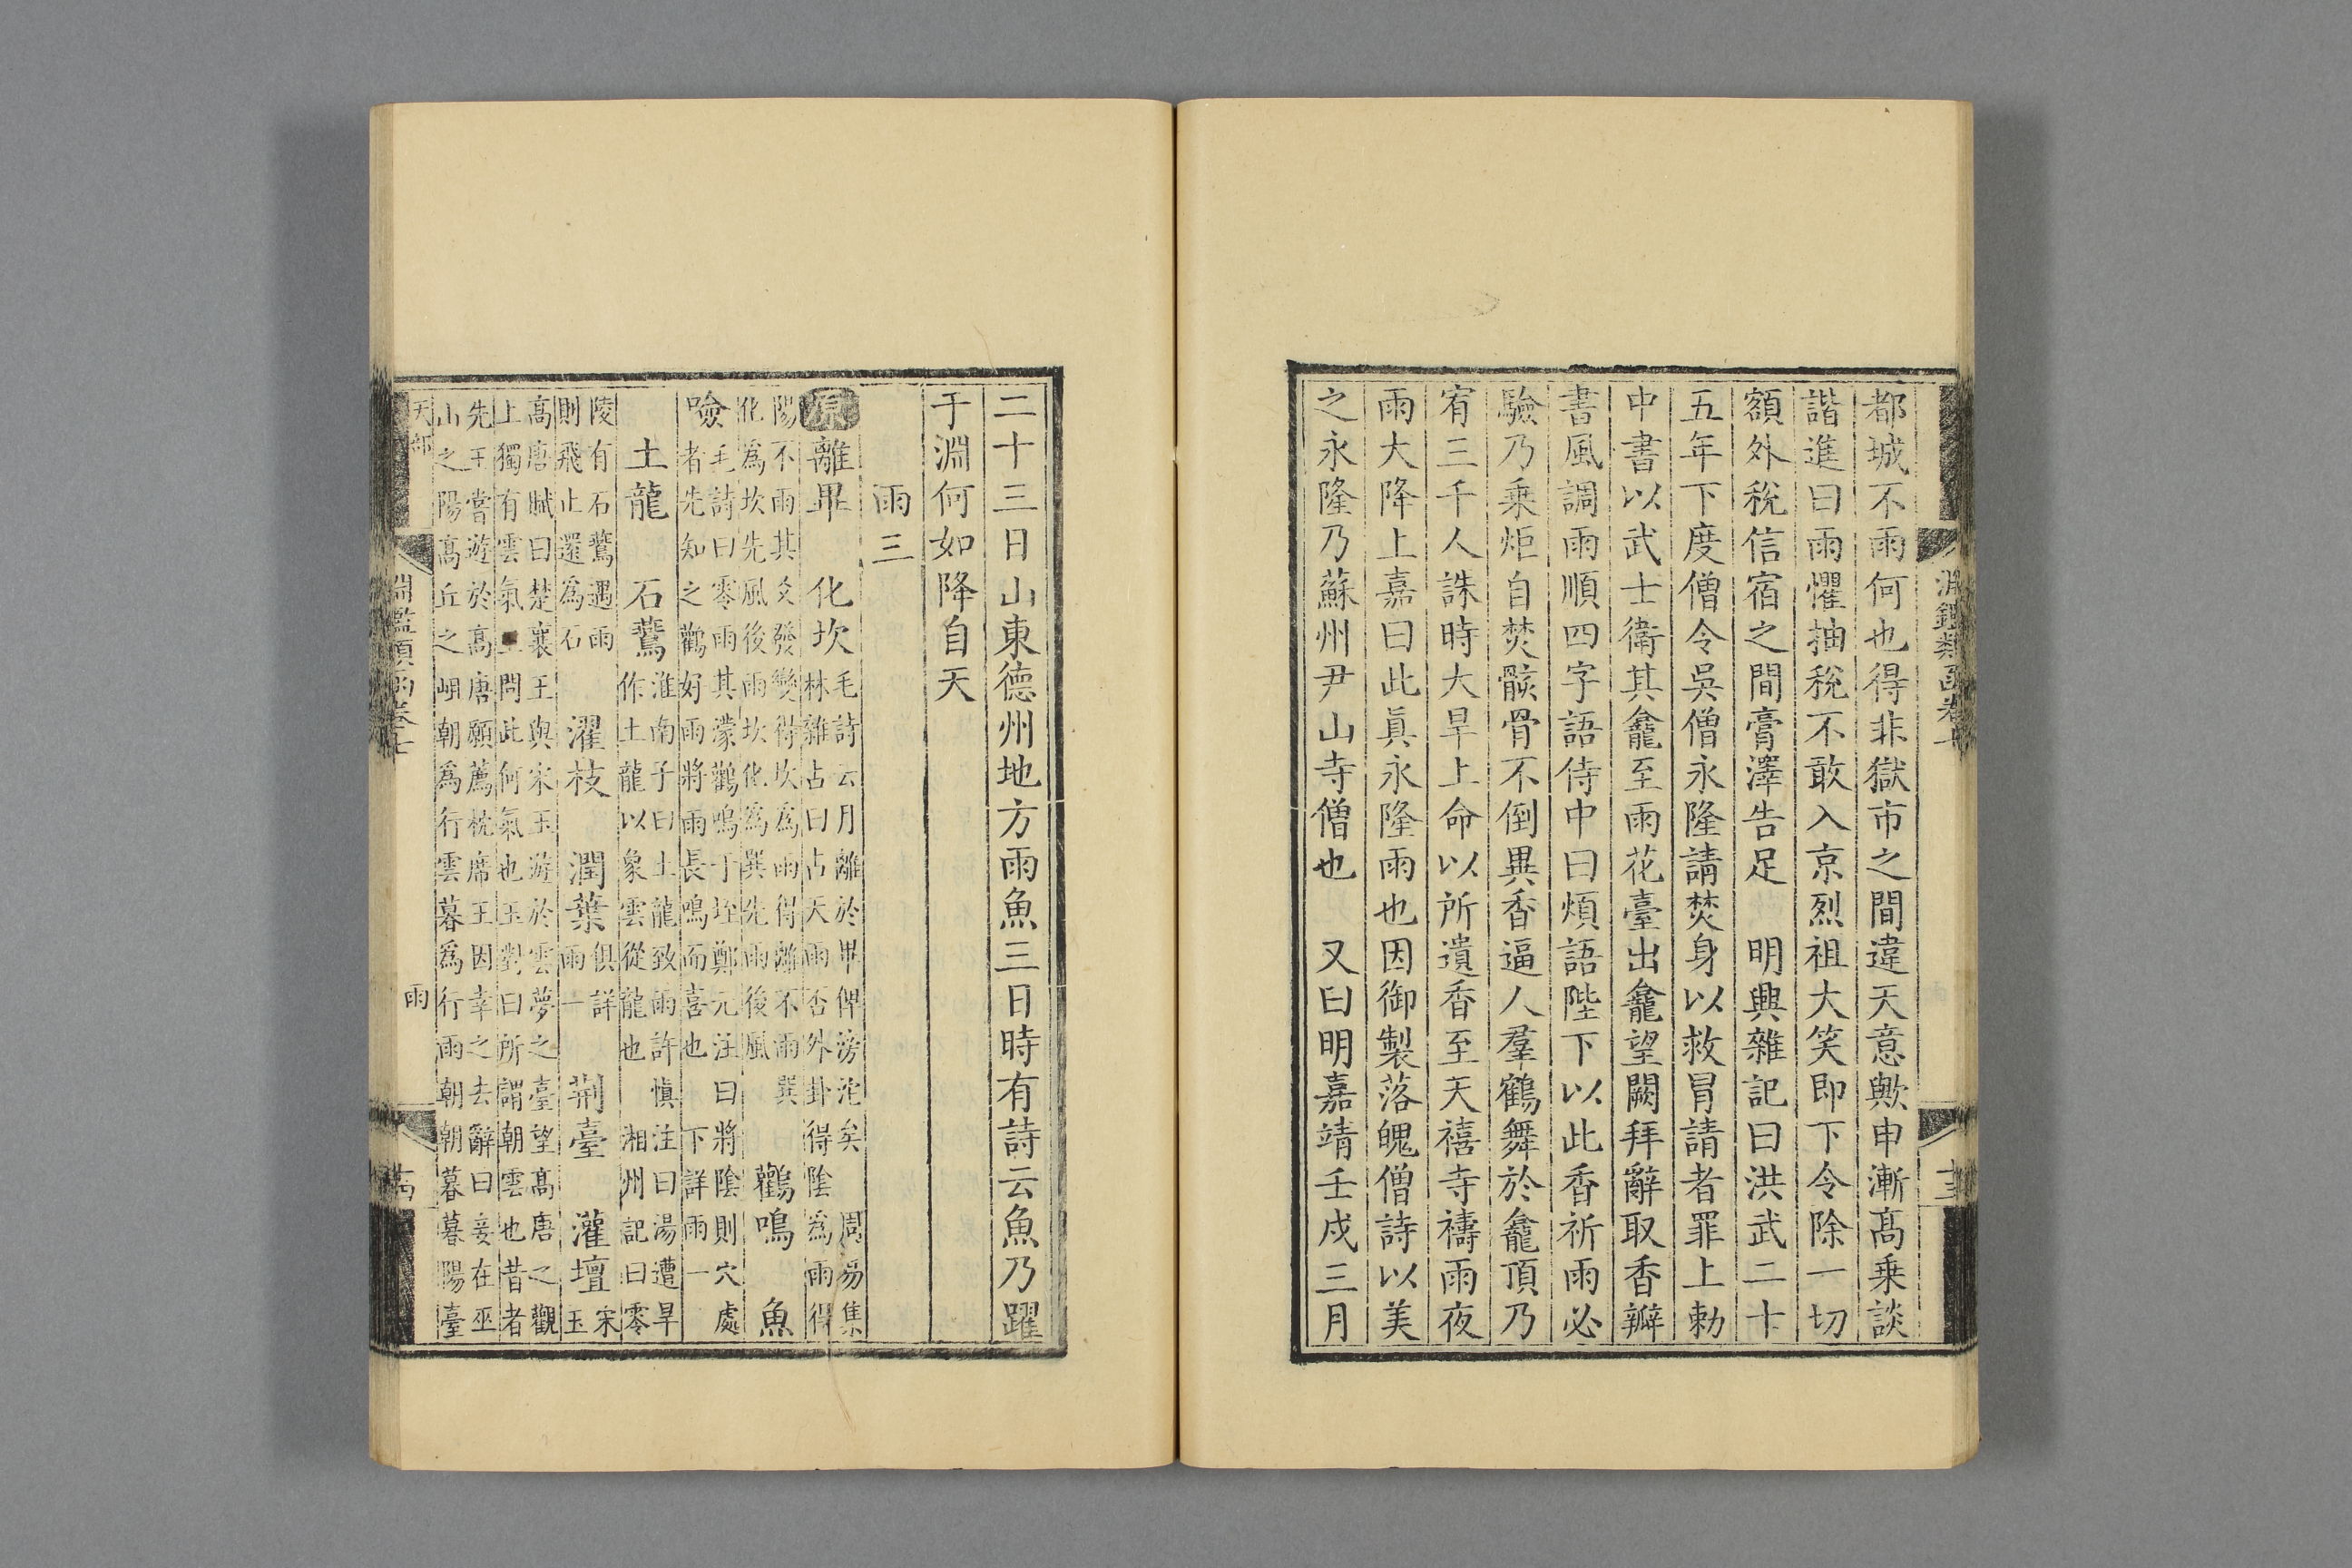 淵鑑類函卷十
十三
都城不雨何也得非獄市之間違天意歟申漸髙乗談
諧進曰雨懼抽稅不敢入京烈祖大笑即下令除一切
額外稅信宿之間膏澤告足　明興雜記曰洪武二十
五年下度僧令吳僧永隆請焚身以救冒請者罪上勅
中書以武士衛其龕至雨花臺出龕望闕拜辭取香瓣
書風調雨順四字語侍中曰煩語陛下以此香祈雨必
驗乃乗炬自焚骸骨不倒異香逼人羣鶴舞於龕頂乃
宥三千人誅時大旱上命以所遺香至天禧寺禱雨夜
雨大降上嘉曰此眞永隆雨也因御製落魄僧詩以美
之永隆乃蘇州尹山寺僧也　又曰明嘉靖壬戍三月
二十三日山東德州地方雨魚三日時有詩云魚乃躍
于淵何如降自天
雨三
原離畢　化坎
毛詩云月離於畢俾滂沱矣　周易集
林雜占曰占天雨否外卦得陰為雨得
陽不雨其爻發變得坎為雨得離不雨巽
化為坎先風後雨坎化為巽先雨後風
鸛鳴　魚
噞
毛詩曰零雨其濛鸛鳴于垤鄭元注曰將陰則穴處
者先知之鸛好雨將雨長鳴而喜也　下詳雨一
土龍　石鷰
淮南子曰土龍致雨許慎注曰湯遭旱
作土龍以象雲從龍也　湘州記曰零
陵有石鷰遇雨
則飛止還為石
濯枝　潤葉
俱詳
雨一
荆臺　灌壇
宋
玉
髙唐賦曰楚襄王與宋玉遊於雲夢之臺望髙唐之觀
上獨有雲氣王問此何氣也玉對曰所謂朝雲也昔者
先王嘗遊於髙唐願薦枕席王因幸之去辭曰妾在巫
山之陽髙丘之岨朝為行雲暮為行雨朝朝暮暮陽臺
天部　雨
淵鑑類函卷十